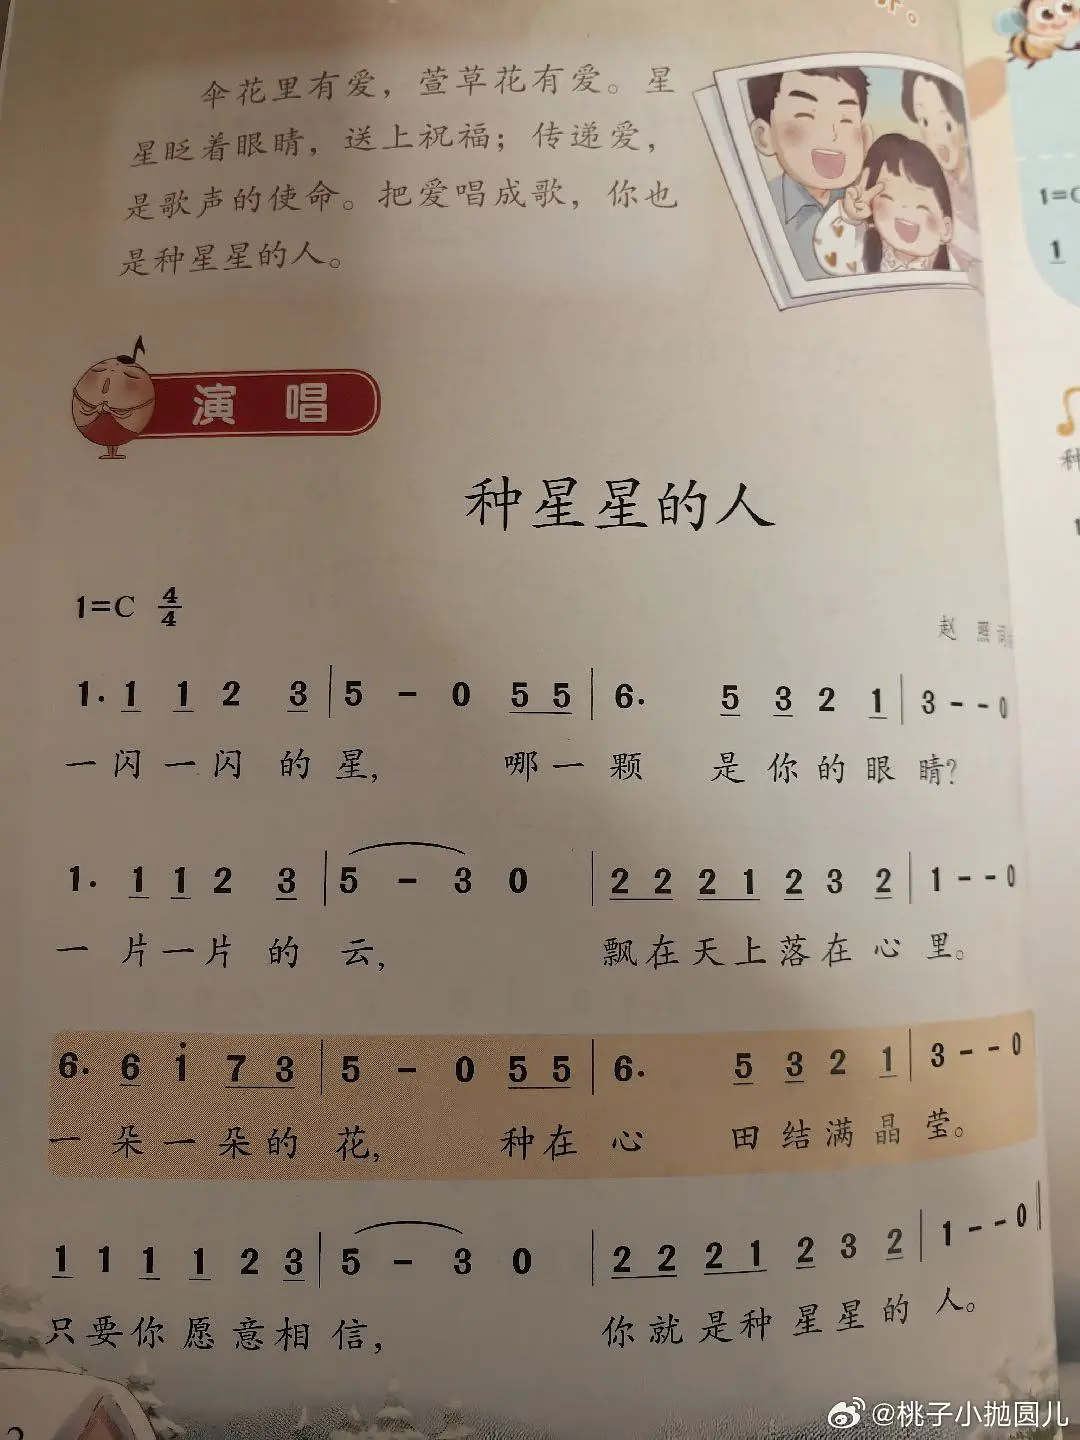 伞花里有爱，萱草花有爱。星
星眨着眼睛，送上祝福；传递爱，
是歌声的使命。把爱唱成歌，你也
是种星星的人。
演 唱
种星星的人
1=C 4/4
赵 照 词
1. 1 1 2 3 | 5 - 0 5 5 | 6. 5 3 2 1 | 3 - - 0
一闪一闪的星， 哪一颗 是你的眼睛？
1. 1 1 2 3 | 5 - 3 0 | 2 2 2 1 2 3 2 | 1 - - 0
一片一片的云， 飘在天上落在心里。
6. 6 i 7 3 | 5 - 0 5 5 | 6. 5 3 2 1 | 3 - - 0
一朵一朵的花， 种在心 田结满晶莹。
1 1 1 1 2 3 | 5 - 3 0 | 2 2 2 1 2 3 2 | 1 - - 0 ‖
只要你愿意相信， 你就是种星星的人。
1=C
1
种
@桃子小抛圆儿